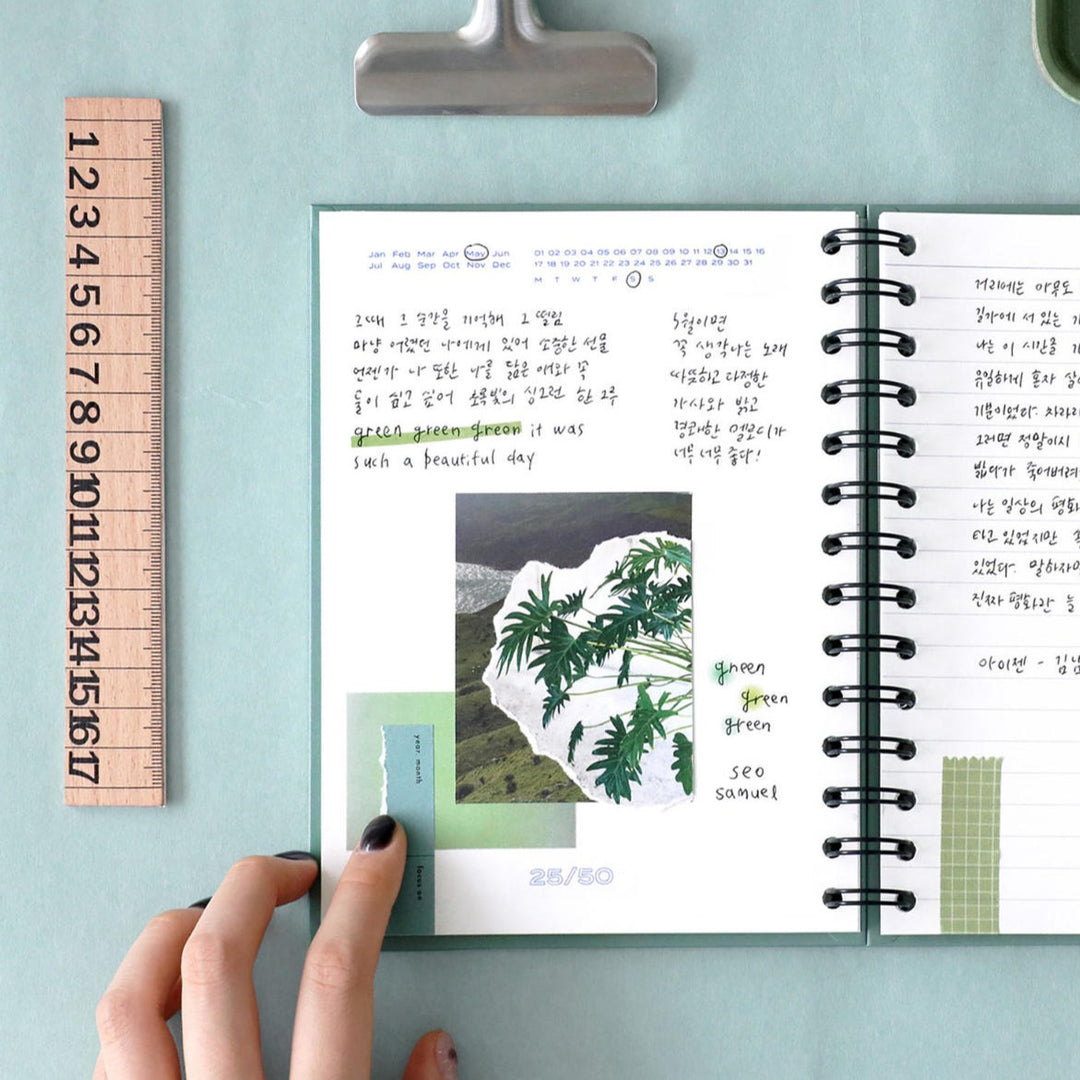 1 2 3 4 5 6 7 8 9 10 11 12 13 14 15 16 17
Jan Feb Mar Apr May Jun
Jul Aug Sep Oct Nov Dec
01 02 03 04 05 06 07 08 09 10 11 12 13 14 15 16
17 18 19 20 21 22 23 24 25 26 27 28 29 30 31
M T W T F S S
그때 그 순간을 기억해 그 떨림
마냥 어렸던 나에게 있어 소중한 선물
언젠가 나 또한 나를 닮은 애와 꼭
둘이 쉬고 싶어 초록빛의 싱그런 한 그루
green green green it was
such a beautiful day
5월이면
꼭 생각나는 노래
따뜻하고 다정한
가사와 밝고
경쾌한 멜로디가
너무 너무 좋다!
green
green
green
seo
samuel
year. month
focus on
25/50
거리에는 아무도
길가에 서 있는
나는 이 시간을
유일하게 혼자
기분이었다. 차라리
그러면 정말이지
밟다가 죽어버려
나는 일상의 평화
타고 있었지만
있었다. 말하자면
진짜 평화란 늘
아이젠 -